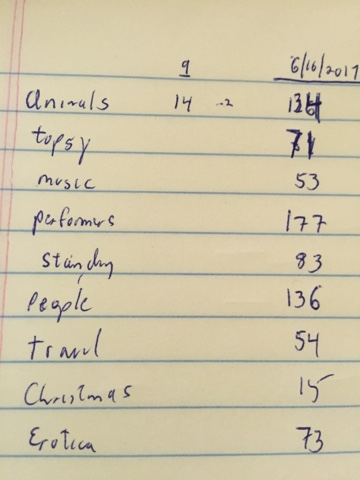 9 6/16/2017
Animals 14 -2
topsy 71
music 53
performers 177
standing 83
People 136
travel 54
Christmas 15
Erotica 73